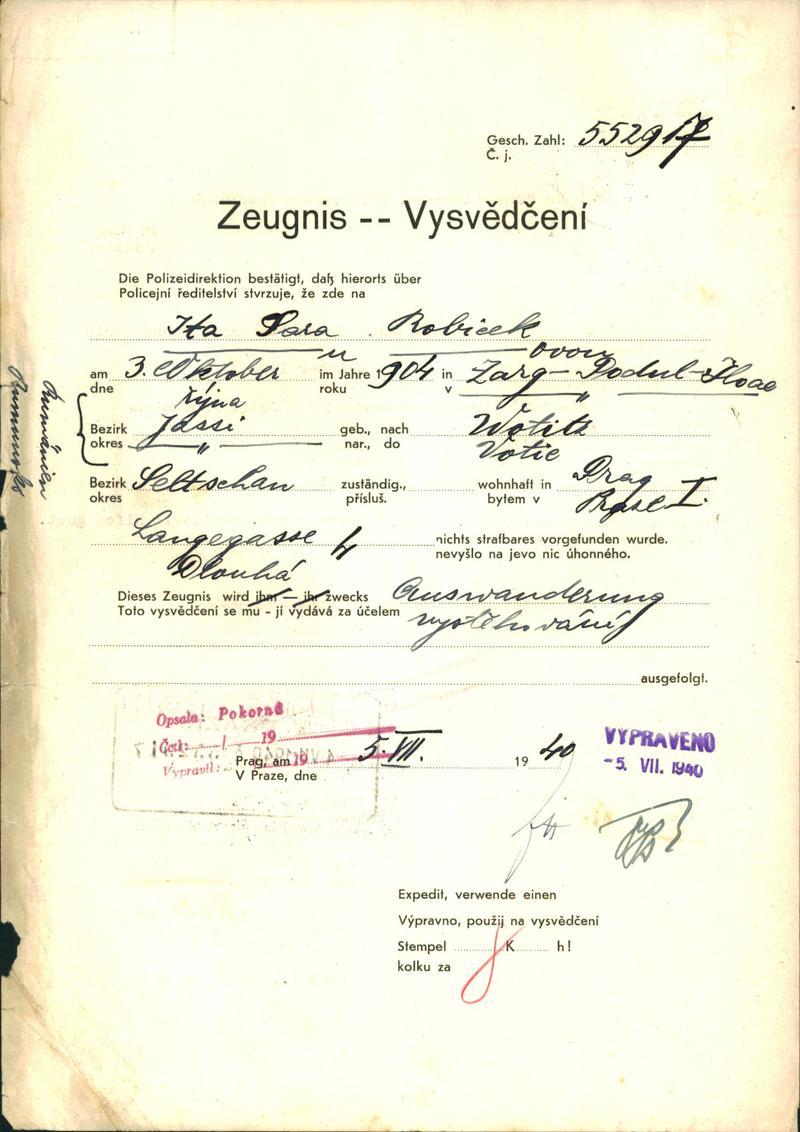 Gesch. Zahl: 55291
Č. j.
Zeugnis -- Vysvědčení
Die Polizeidirektion bestätigt, daß hierorts über
Policejní ředitelství stvrzuje, že zde na
Ita Sara Robicek
ovou
am 3. Oktober im Jahre 1904 in Targ-Podul-Iloae
dne října roku v "
Bezirk Jassi geb., nach Wotitz
okres " nar., do Votic
Rumänien
Rumunsko
Bezirk Seltschan zuständig., wohnhaft in Prag
okres přísluš. bytem v Praze I.
Langegasse 4 nichts strafbares vorgefunden wurde.
Dlouhá nevyšlo na jevo nic úhonného.
Dieses Zeugnis wird ihm — ihr zwecks Auswanderung
Toto vysvědčení se mu - jí vydává za účelem vystěhování
ausgefolgt.
Opsala: Pokorná
Četl: 19
Vypravil: 19
Prag, am 5. VII. 1940
V Praze, dne
VYPRAVENO
-5. VII. 1940
Expedit, verwende einen
Výpravno, použij na vysvědčení
Stempel K h!
kolku za